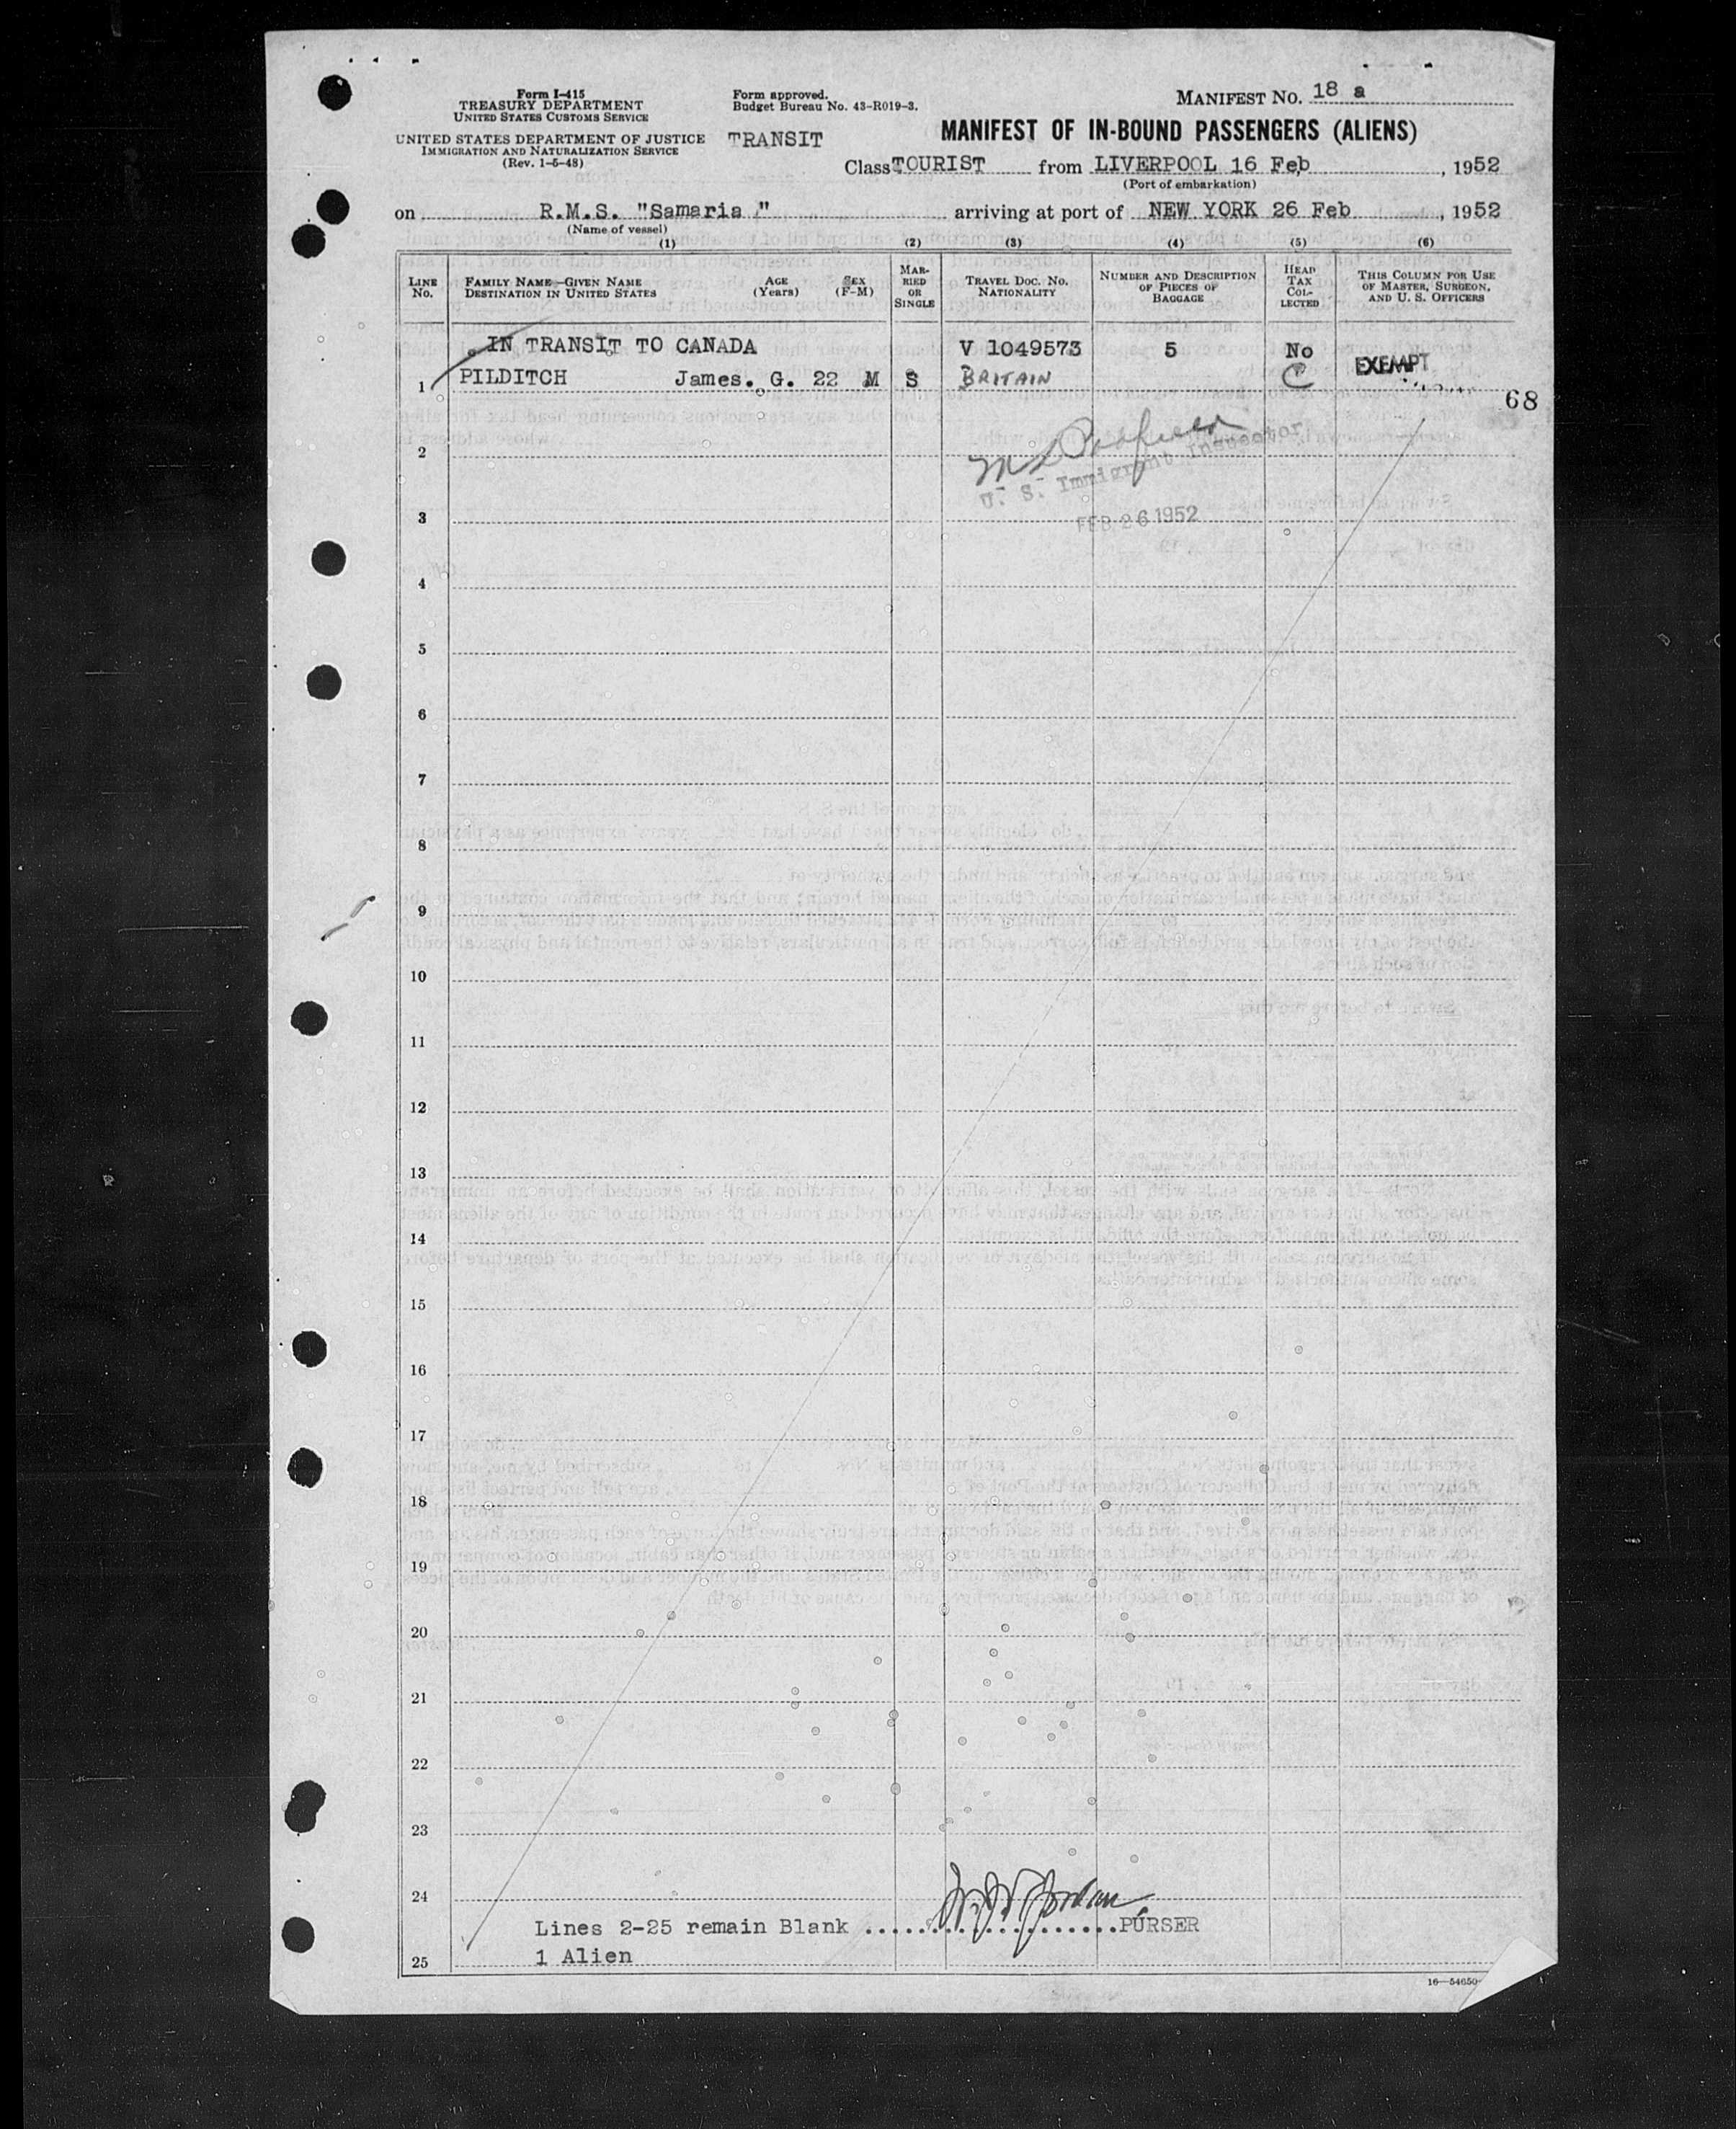 Form I-415
TREASURY DEPARTMENT
UNITED STATES CUSTOMS SERVICE
UNITED STATES DEPARTMENT OF JUSTICE
IMMIGRATION AND NATURALIZATION SERVICE
(Rev. 1-5-48)
Form approved.
Budget Bureau No. 43-R019-3.
TRANSIT
MANIFEST NO. 18 a
MANIFEST OF IN-BOUND PASSENGERS (ALIENS)
Class TOURIST from LIVERPOOL 16 Feb, 1952
(Port of embarkation)
on R.M.S. "Samaria" arriving at port of NEW YORK 26 Feb, 1952
(Name of vessel)
(1) (2) (3) (4) (5) (6)
LINE NO.
FAMILY NAME—GIVEN NAME
DESTINATION IN UNITED STATES
AGE (Years)
SEX (F-M)
MARRIED OR SINGLE
TRAVEL DOC. NO.
NATIONALITY
NUMBER AND DESCRIPTION OF PIECES OF BAGGAGE
HEAD TAX COLLECTED
THIS COLUMN FOR USE OF MASTER, SURGEON, AND U. S. OFFICERS
IN TRANSIT TO CANADA V 1049573 5 No
1 PILDITCH James. G. 22 M S BRITAIN C EXEMPT
68
2
U. S. Immigrant Inspector
3
FEB 26 1952
4
5
6
7
8
9
10
11
12
13
14
15
16
17
18
19
20
21
22
23
24
Lines 2-25 remain Blank .................... PURSER
25 1 Alien
16—54650